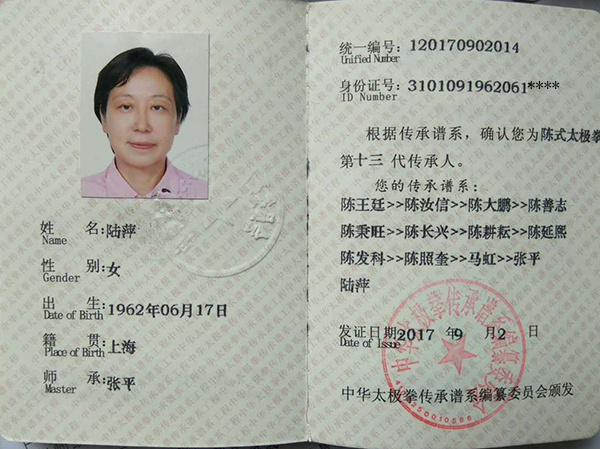 姓 名:陆萍
Name
性 别:女
Gender
出 生:1962年06月17日
Date of Birth
籍 贯:上海
Place of Birth
师 承:张平
Master
统一编号:120170902014
Unified Number
身份证号:3101091962061****
ID Number
根据传承谱系,确认您为陈式太极拳
第十三 代传承人。
您的传承谱系:
陈王廷>>陈汝信>>陈大鹏>>陈善志
陈秉旺>>陈长兴>>陈耕耘>>陈延熙
陈发科>>陈照奎>>马虹>>张平
陆萍
发证日期:2017 年 9 月 2 日
Date of Issue
中华太极拳传承谱系编纂委员会
中华太极拳传承谱系编纂委员会颁发